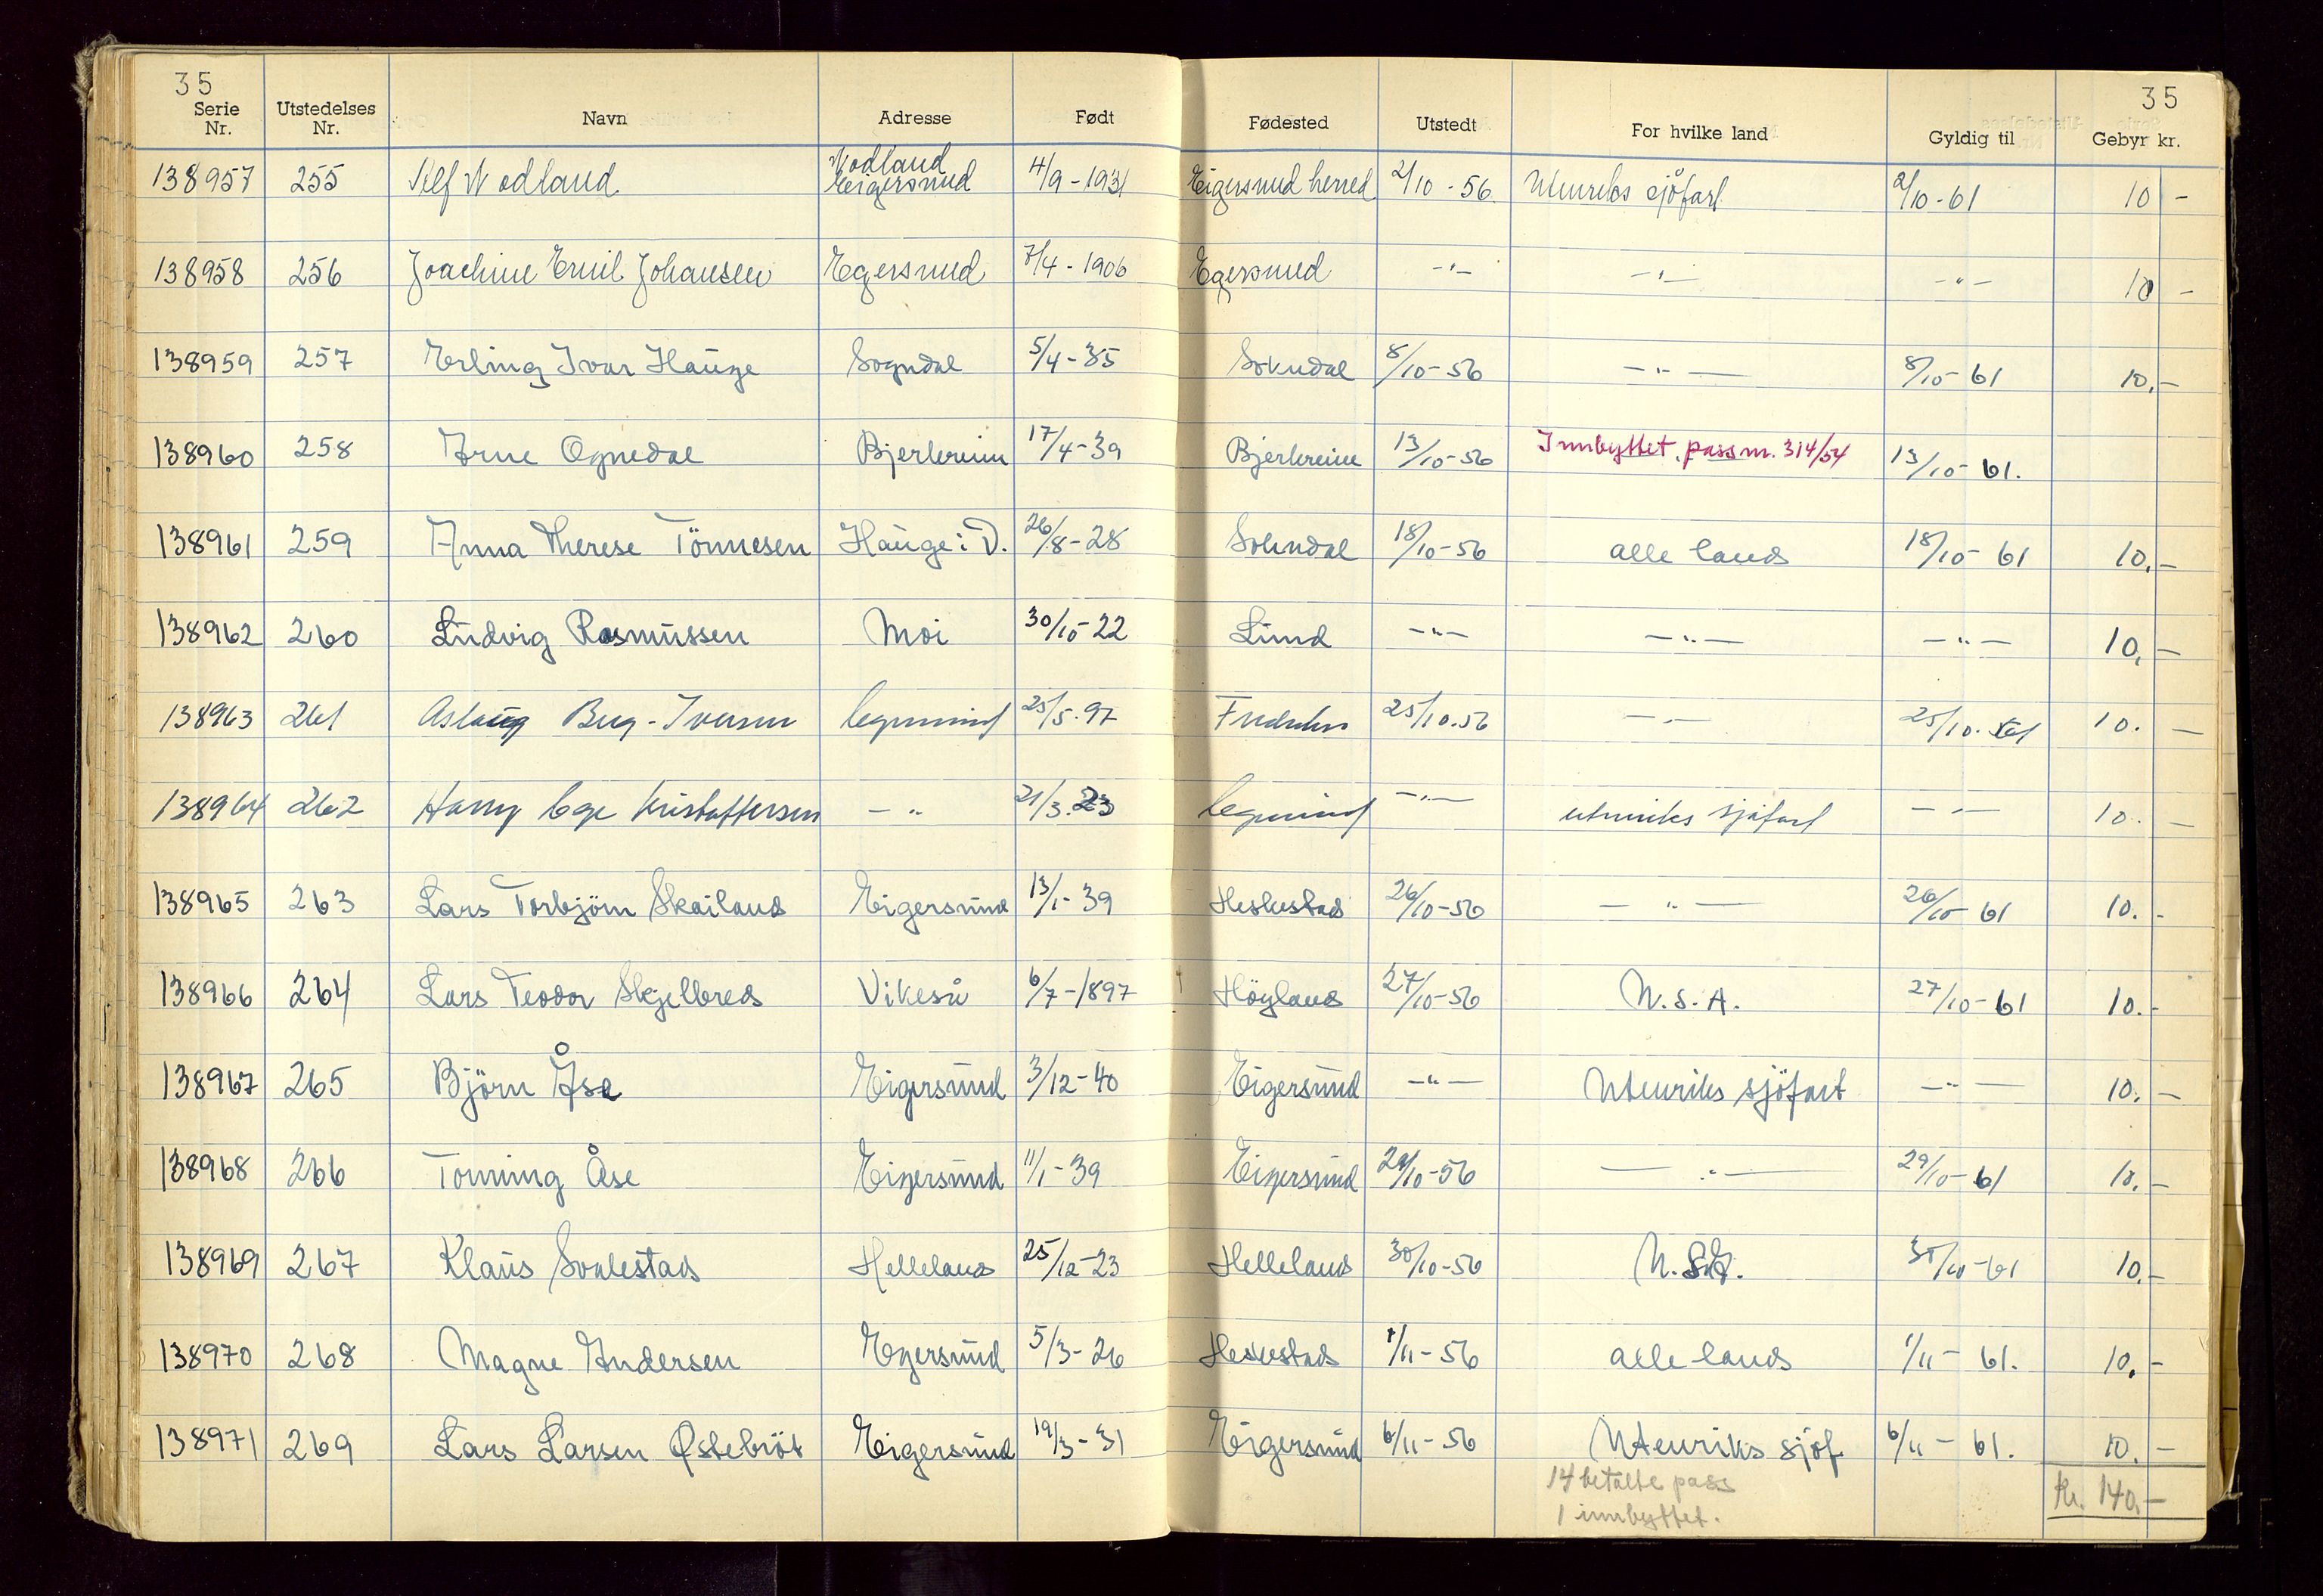 35 35
Serie Nr. Utstedelses Nr. Navn Adresse Født Fødested Utstedt For hvilke land Gyldig til Gebyr kr.
138957 255 Alf Vodland Vodland Eigersund 4/9-1931 Eigersund herred 2/10-56. Utenriks sjöfart 2/10-61 10 -
138958 256 Joachim Emil Johansen Egersund 7/4-1906 Egersund -"- -"- -"- 10 -
138959 257 Erling Ivar Hauge Sogndal 5/4-35 Sokndal 8/10-56 -"- 8/10-61 10,-
138960 258 Arne Ognedal Bjerkreim 17/4-39 Bjerkreim 13/10-56 Innbyttet. pass nr. 314/54 13/10-61.
138961 259 Anna Therese Tönnesen Hauge i D. 26/8-28 Sokndal 18/10-56 alle land 18/10-61 10,-
138962 260 Ludvig Rasmussen Moi 30/10-22 Lund -"- -"- -"- 10,-
138963 261 Aslaug Berg-Iversen Egersund 25/5.97 25/10.56 -"- 25/10.61 10. -
138964 262 Harry Ege Kristoffersen -"- 21/3.23 Egersund -"- utenriks sjøfart -"- 10. -
138965 263 Lars Torbjörn Skailand Eigersund 13/1-39 Heskestad 26/10-56 -"- 26/10-61 10.-
138966 264 Lars Teodor Skjelbred Vikeså 6/7-1897 Höyland 27/10-56 U.S.A. 27/10-61 10.-
138967 265 Björn Åse Eigersund 3/12-40 Eigersund -"- Utenriks sjöfart -"- 10.-
138968 266 Tonning Åse Eigersund 11/1-39 Eigersund 29/10-56 -"- 29/10-61 10.-
138969 267 Klaus Svalestad Helleland 25/12-23 Helleland 30/10-56 U.S.A. 30/10-61 10,-
138970 268 Magne Andersen Egersund 5/3-26 Heskestad 1/11-56 alle land 1/11-61. 10.-
138971 269 Lars Larsen Østebröt Eigersund 19/3-31 Eigersund 6/11-56 Utenriks sjöf. 6/11-61. 10.-
14 betalte pass
1 innbyttet.
Kr. 140,-